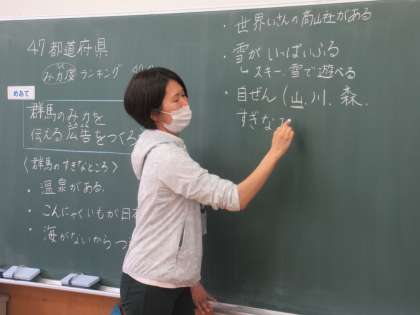 47都道府県
みカ度ランキング
めあて
群馬のみカを
伝える広告をつくろ
〈群馬のすきなところ〉
・温泉がある
・こんにゃくいもが日本
・海がないから つ
・世界いさんの富山社がある
雪がいっぱいふる
↳スキー、雪で遊べる
・自ぜん(山、川、森、
すぎな